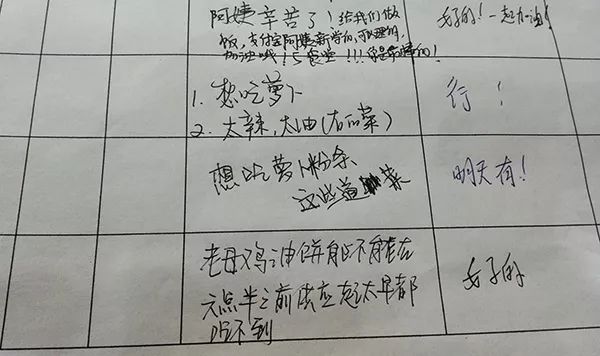 阿姨辛苦了！给我们做
饭，支付宝阿姨新学的，可以理的，
加油哦！5食堂！！！你是最棒的！
好的！一起加油！
1. 想吃萝卜
2. 太辣，太油（右面菜）
行！
想吃萝卜粉条
这些菜
明天有！
老母鸡油饼能不能在
六点半之前供应起太早都
吃不到
好的